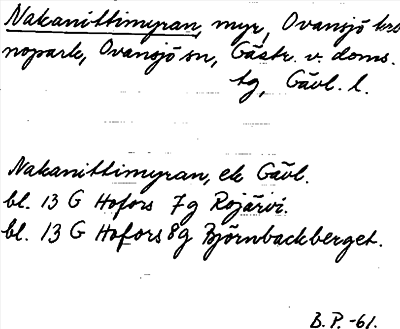 Nakanittimyran, myr, Ovansjö kro
nopark, Ovansjö sn, Gästr. v. doms.
tg, Gävl. l.
Nakanittimyran, ek Gävl.
bl. 13 G Hofors 7g Rojärvi.
bl. 13 G Hofors 8g Björnbackberget.
B.P. -61.